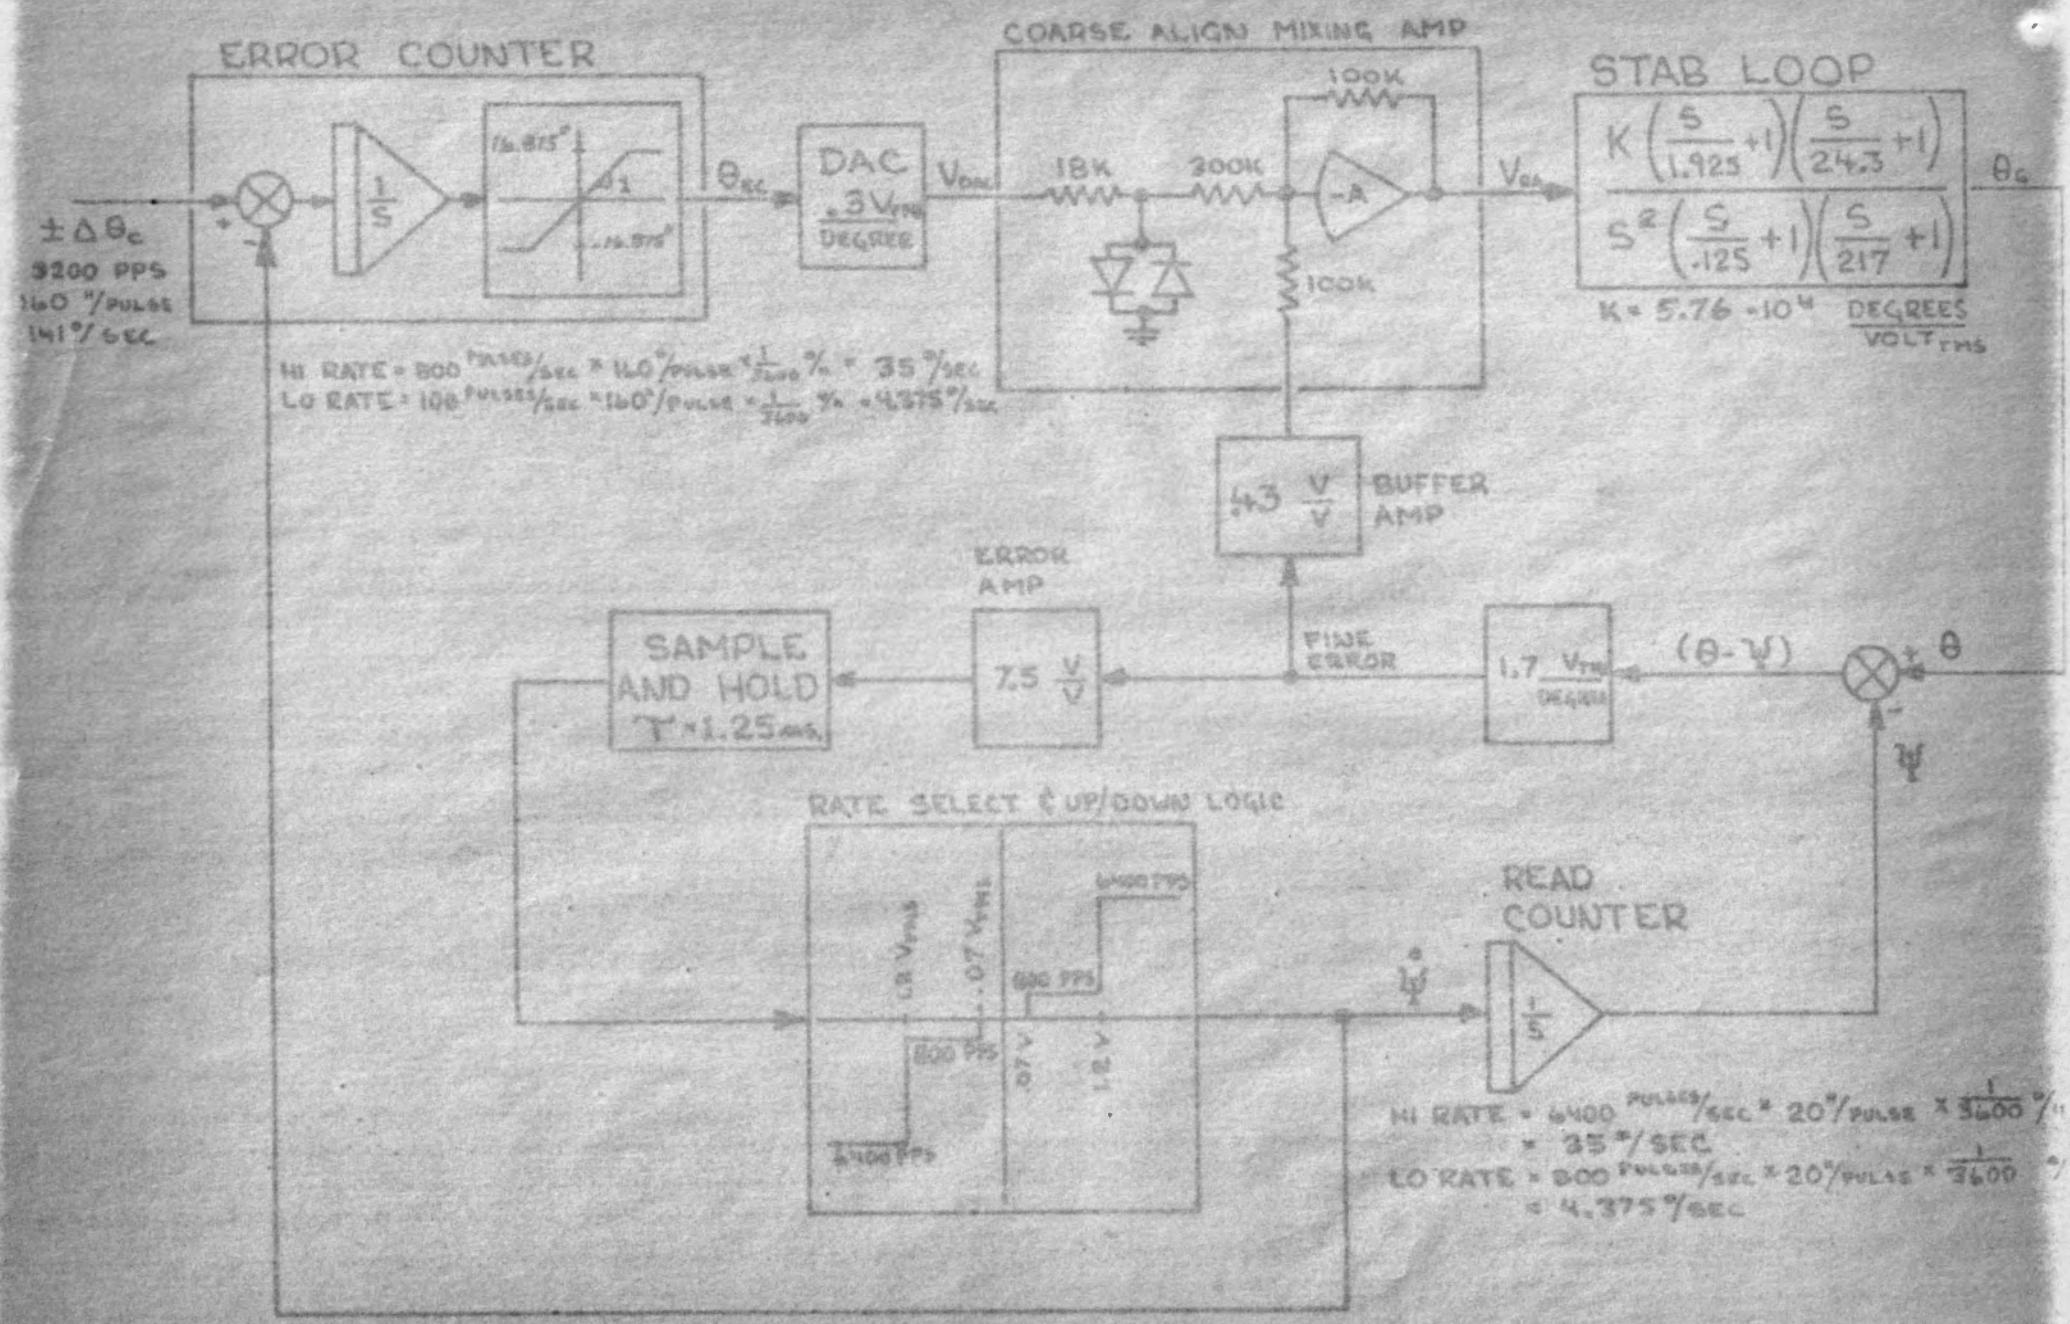 ERROR COUNTER
COARSE ALIGN MIXING AMP
STAB LOOP
± Δ θc
3200 PPS
160 "/PULSE
141°/SEC
1/S
16.875°
1
-16.875°
θEC
DAC
.3 Vrms/DEGREE
VDAC
18K
300K
100K
-A
100K
K (S/1.925 +1)(S/24.3 +1)
S² (S/.125 +1)(S/217 +1)
θG
K = 5.76 ·10⁴ DEGREES/VOLT rms
HI RATE = 800 PULSES/SEC × 160"/PULSE × 1/3600 °/" = 35°/SEC
LO RATE = 100 PULSES/SEC × 160"/PULSE × 1/3600 °/" = 4.375°/SEC
.43 V/V
BUFFER
AMP
ERROR
AMP
SAMPLE
AND HOLD
T = 1.25 ms.
7.5 V/V
FINE
ERROR
1.7 Vrms/DEGREE
(θ-Ψ)
+ θ
-
Ψ
RATE SELECT & UP/DOWN LOGIC
6400 PPS
800 PPS
1.2 Vrms
.07 Vrms
.07 V
1.2 V
800 PPS
6400 PPS
Ψ̇
READ
COUNTER
1/S
HI RATE = 6400 PULSES/SEC × 20"/PULSE × 1/3600
= 35°/SEC
LO RATE = 800 PULSES/SEC × 20"/PULSE × 1/3600
= 4.375°/SEC